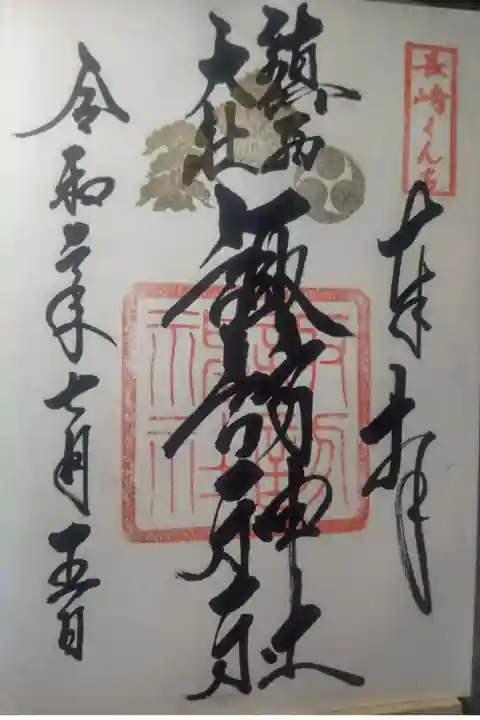 長崎くんち
奉拝
鎮西
大社
諏訪神社
令和二年七月五日
諏訪
神社